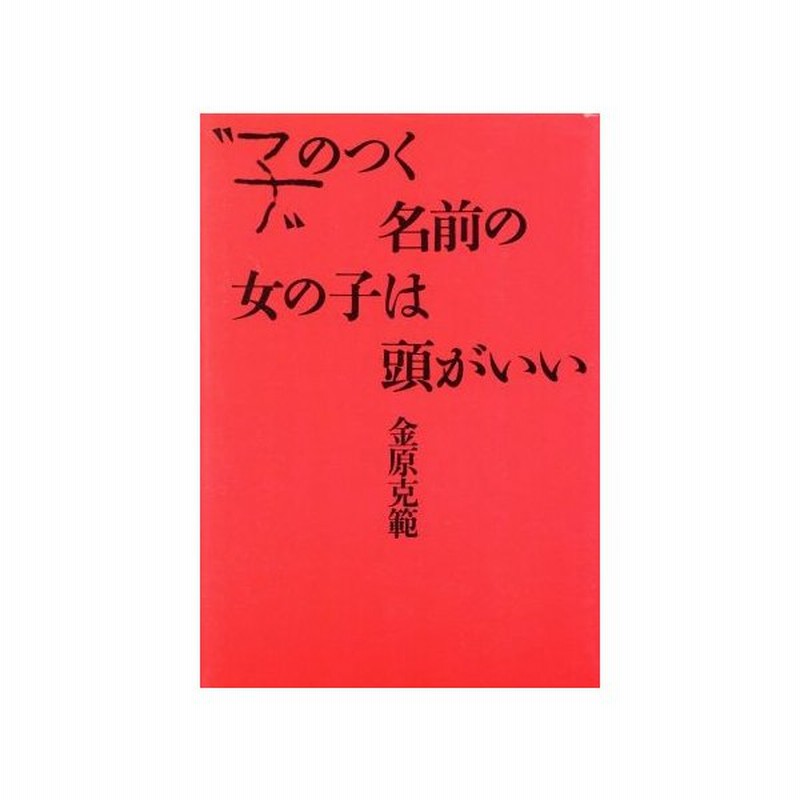 〝子のつく
名前の
女の子は
頭がいい
金原克範